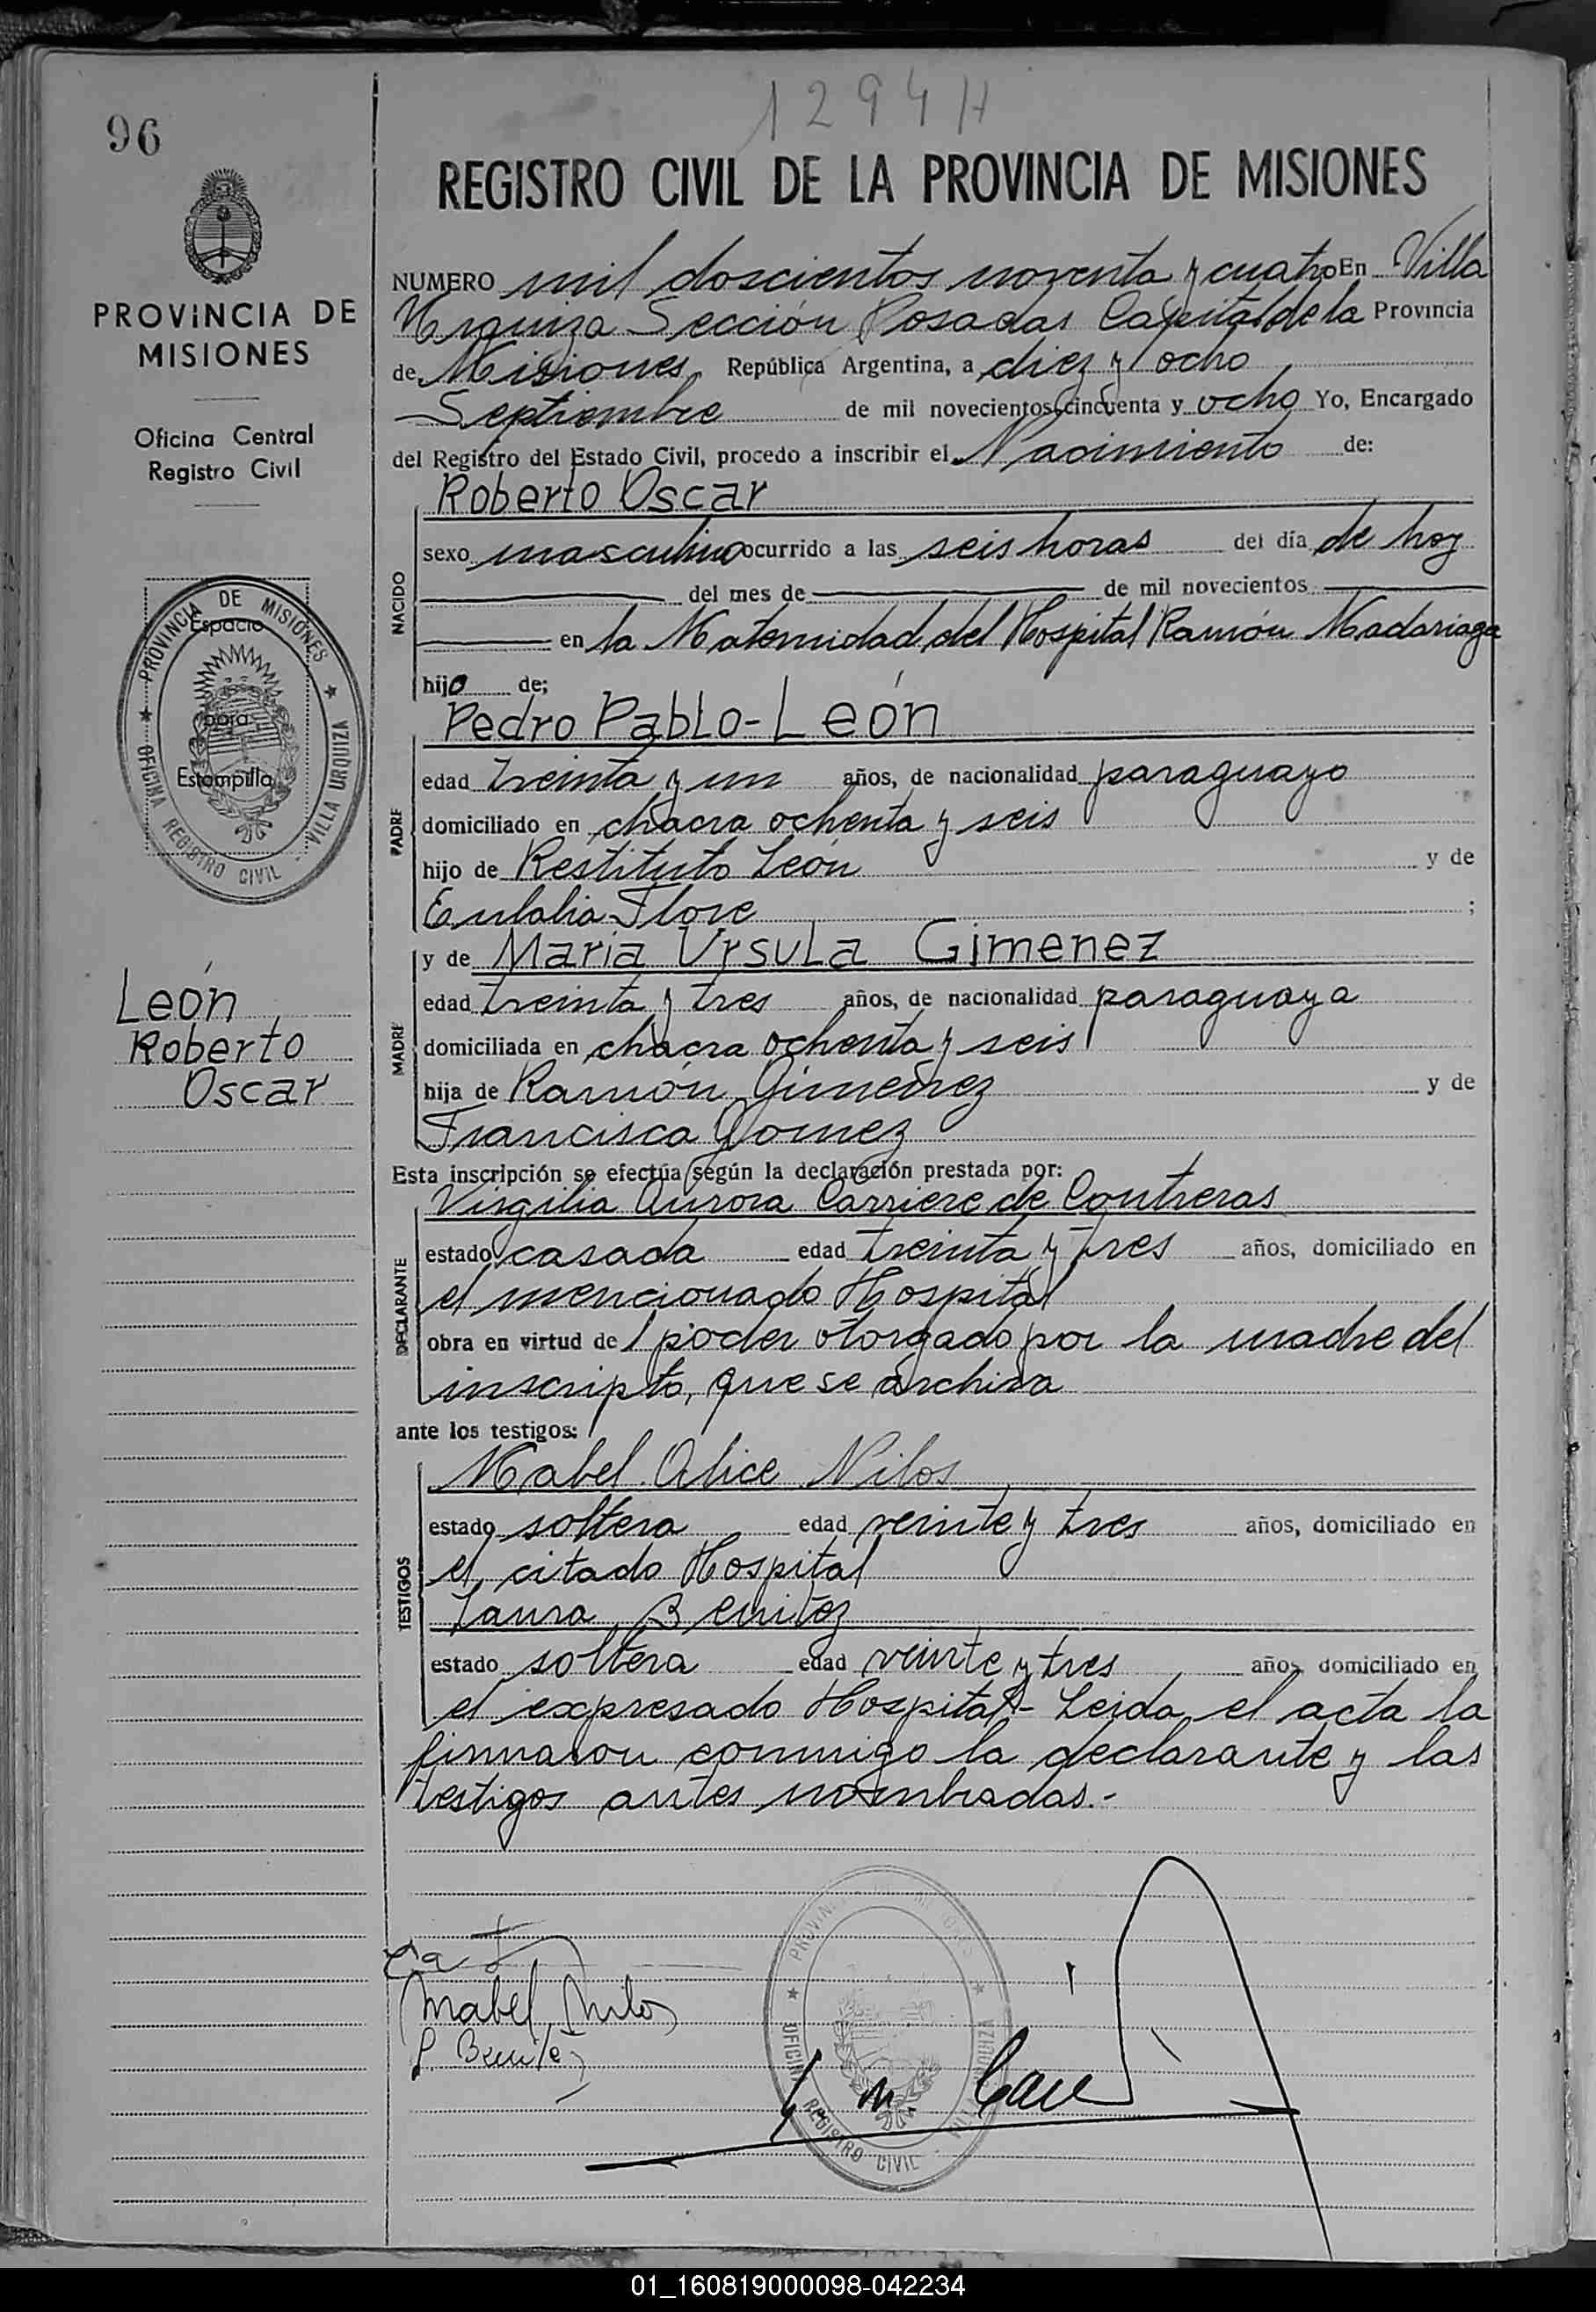 1294 H
96
REGISTRO CIVIL DE LA PROVINCIA DE MISIONES
PROVINCIA DE
MISIONES
Oficina Central
Registro Civil
PROVINCIA DE MISIONES
Espacio
para
Estampilla
OFICINA REGISTRO CIVIL - VILLA URQUIZA
León
Roberto
Oscar
NUMERO mil doscientos noventa y cuatro En Villa
Urquiza Sección Posadas Capital de la Provincia
de Misiones República Argentina, a diez y ocho
Septiembre de mil novecientos cincuenta y ocho Yo, Encargado
del Registro del Estado Civil, procedo a inscribir el Nacimiento de:
NACIDO
Roberto Oscar
sexo masculino ocurrido a las seis horas del día de hoy
del mes de de mil novecientos
en la Maternidad del Hospital Ramón Madariaga
hijo de;
PADRE
Pedro Pablo-León
edad treinta y un años, de nacionalidad paraguayo
domiciliado en chacra ochenta y seis
hijo de Restituto León y de
Eulalia Flore ;
MADRE
y de Maria Ursula Gimenez
edad treinta y tres años, de nacionalidad paraguaya
domiciliada en chacra ochenta y seis
hija de Ramón Gimenez y de
Francisca Gomez
Esta inscripción se efectúa según la declaración prestada por:
DECLARANTE
Virgilia Aurora Carriere de Contreras
estado casada edad treinta y tres años, domiciliado en
el mencionado Hospital
obra en virtud de poder otorgado por la madre del
inscripto, que se archiva
ante los testigos:
TESTIGOS
Mabel Alice Nilos
estado soltera edad veinte y tres años, domiciliado en
el citado Hospital
Laura Benitez
estado soltera edad veinte y tres años, domiciliado en
el expresado Hospital - Leida el acta la
firmaron conmigo la declarante y las
testigos antes nombradas.-
Mabel Nilos
L. Benitez
OFICINA REGISTRO CIVIL
01_160819000098-042234